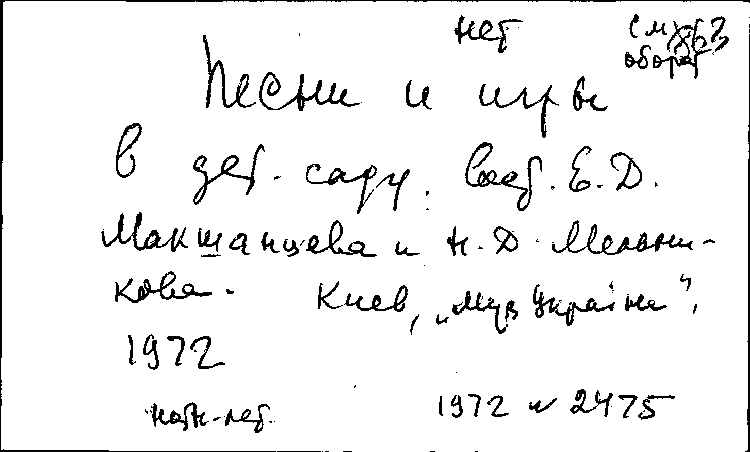 нет см 863
оборот
Песни и игры
в дет. саду. Сост. Е.Д.
Макшанцева и Н.Д. Мельни-
кова. Киев, „Муз Україна",
1972
нотн-лет. 1972 N 2475